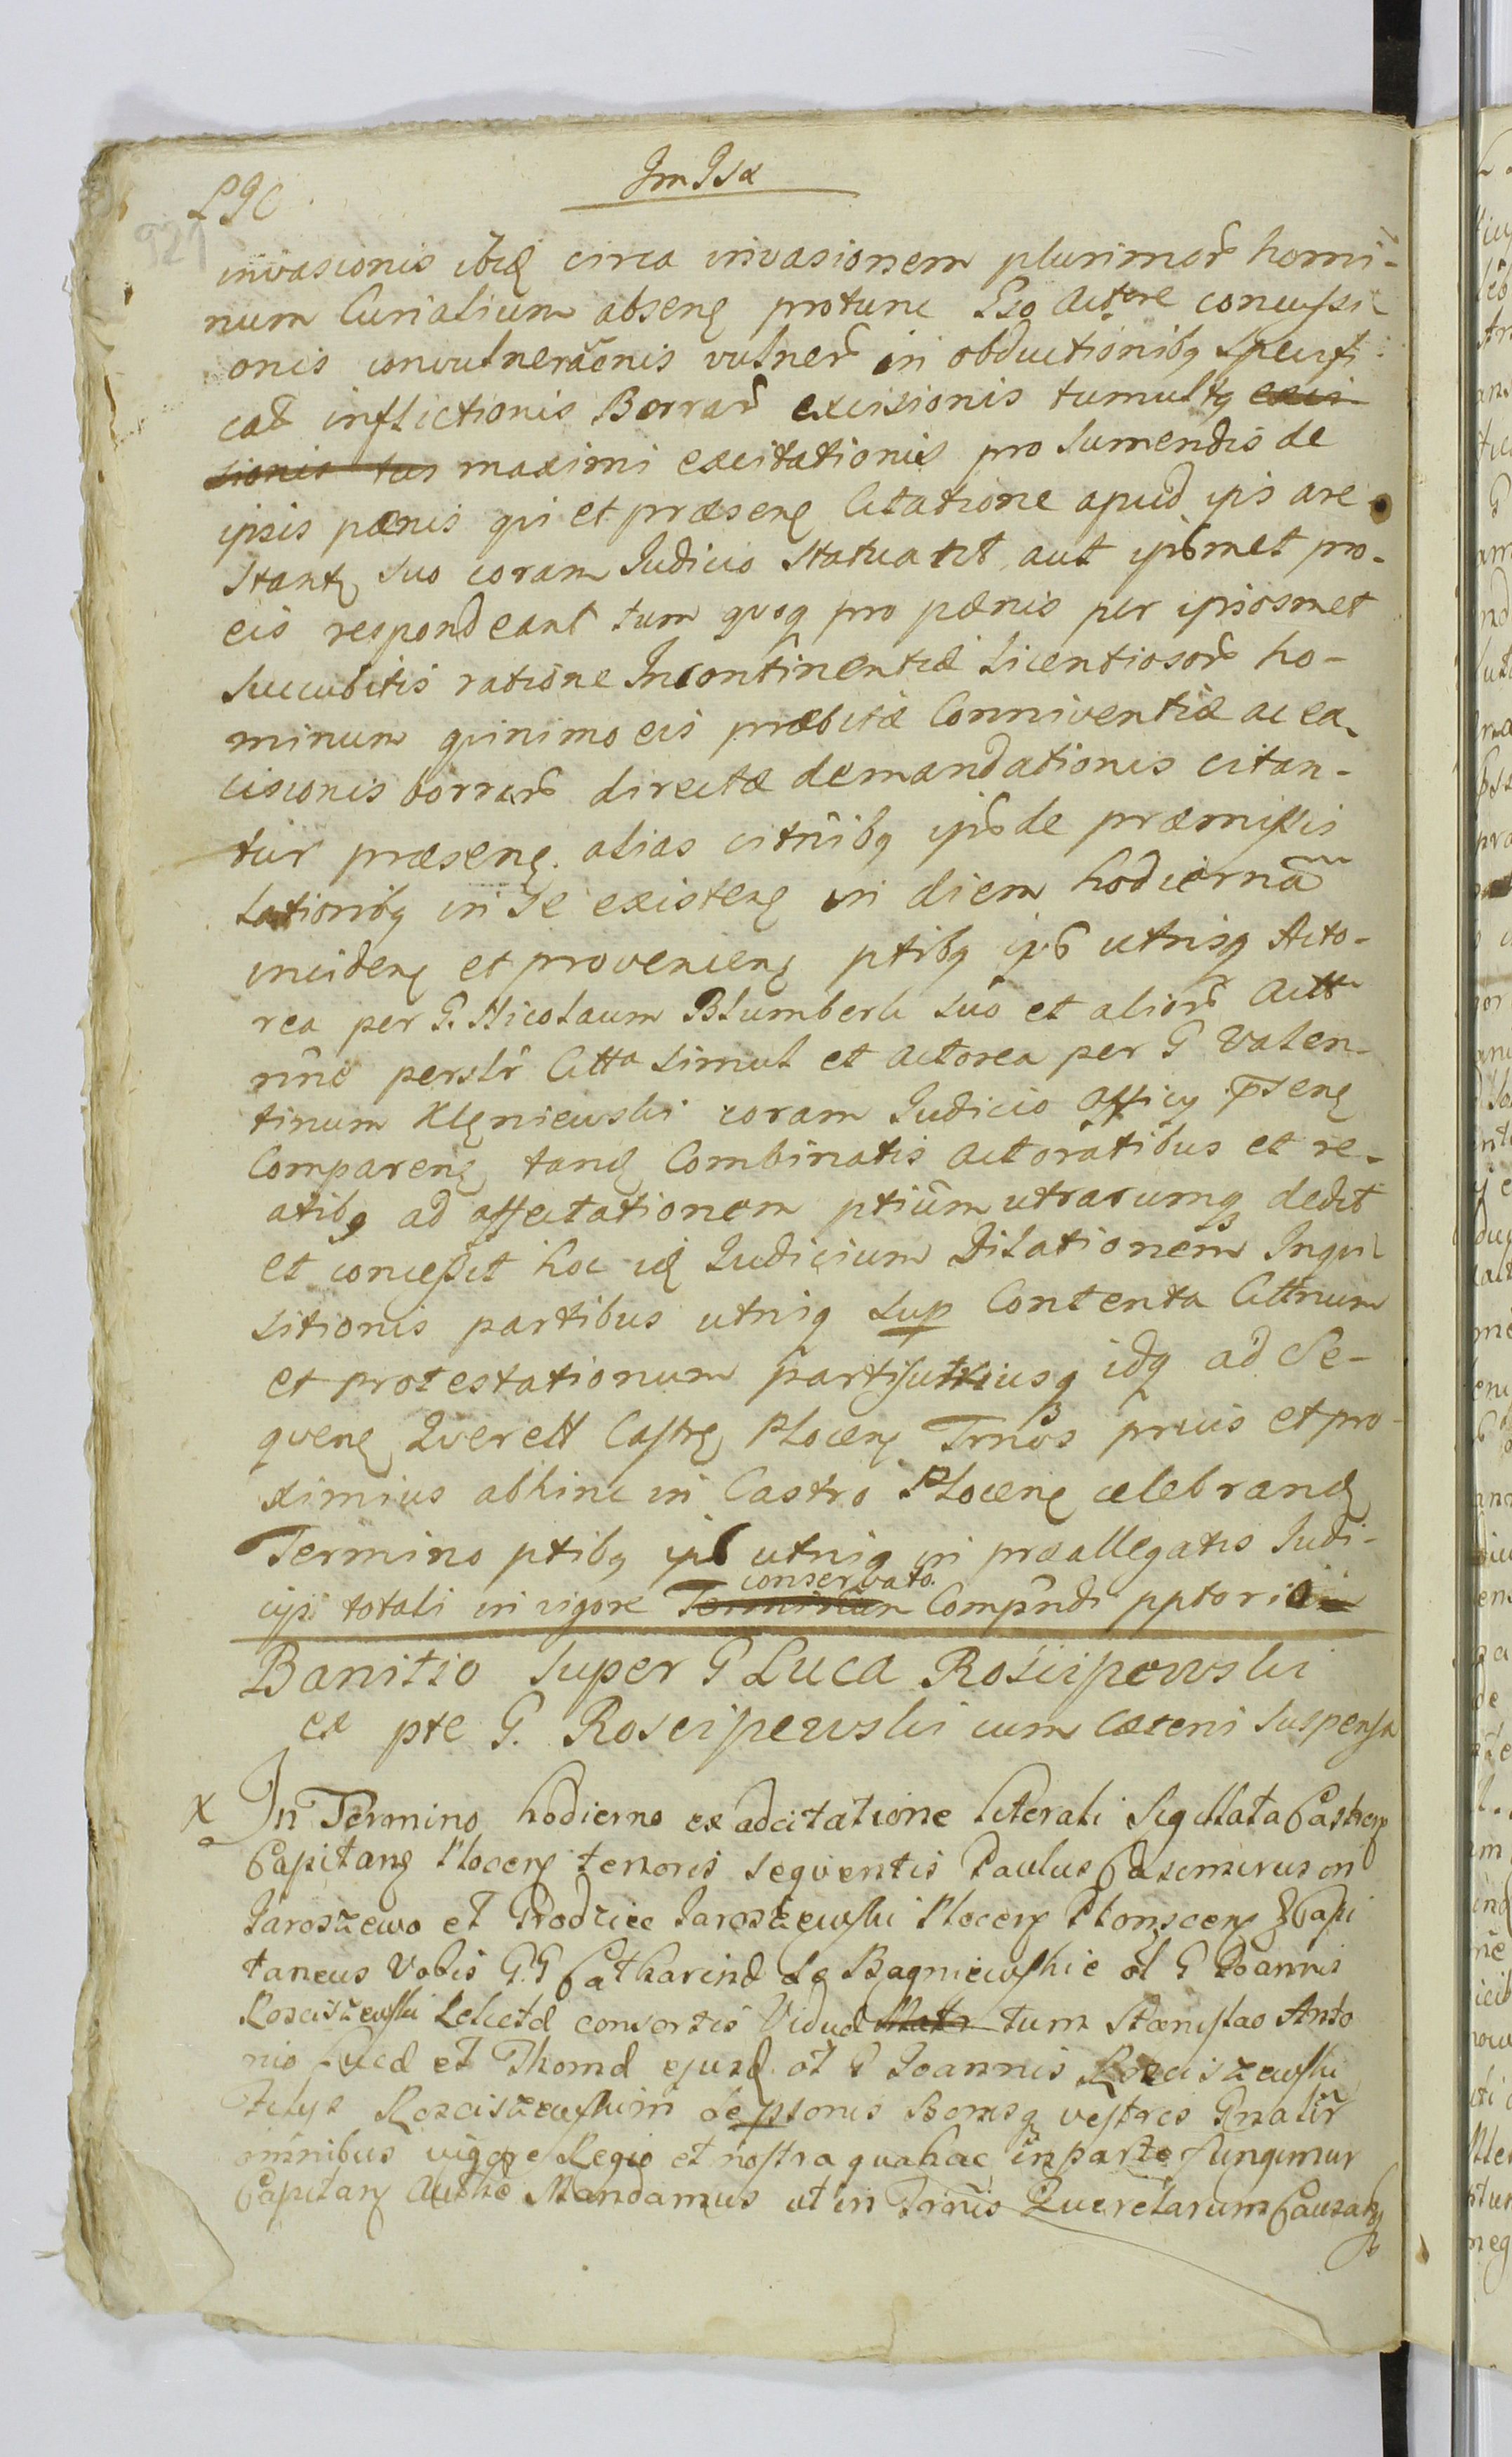 Im Isa
L9C
921
invasionis ibiq circa invasionem plurimor homi-
num Curialium absenq protunc Lso Actore concussi-
onis convulneraonis vulner in obductionibq specifi
cat inflictionis Borrar excisionis tumultq exci
sionis tu maximi excitationis pro sumendis de
ipsis pænis qui et præsenq Citatione apud ipis are
stantq suo coram Judicio statuant aut ipsmet pro-
eis respondeant tum quoq pro pænis per ipsosmet
succubitis ratione Incontinentiæ Licentiosor ho-
minum quinimo eis præbitæ Conniventiæ ac ex-
cisionis borrar directæ demandationis citan-
tur præsenq. alias citnibq ips de præmissis
lationibq in se existenq in diem hodiernã
incidenq et provenienq ptibq ips utrisq Acto-
rea per G. Nicolaum Blumberk suo et alior Act
nnõ perslr Citta simul et actorea per G Valen-
tinum Klęniewski coram Judicio officij psenq
Comparenq tandq Combinatis actoratibus et re-
atibq ad affectationem ptium utrarumq dedit
et concessit hoc idq Judicium Dilationem Inqui
sitionis partibus utrisq sup Contenta Cittnum
et protestationum partis utriusq idq ad Se-
quenq Querell Castrq Plocenq Trnos prius et pro-
ximius abhinc in Castro Plocenq celebrandq
Termino ptibq ips utrisq in præallegatis Judi-
conservato
cijs totali in vigore Terminum Compndi pptorio
Banitio super G Luca Rościpewski
ex pte G. Roscipewski cum cæteri suspensa
x In Termino hodierno ex adcitatione literali Sigillata Castrenq
Capitanq Plocenq tenoris sequentis Paulus Casimirus on
Jaroszewo et Prodzice Jaroszewski Plocenq Plonscenq Capi
taneus Vobis G.G Catharinæ de Bagniewskie ol G Joannis
Rosciszewski Relictæ consortis Viduæ Matr tum Stanislao Anto
nio Lucæ et Thomæ ejusd ol G Joannis Rosciszewski
Filys Rosciszewskim de psonis Bonisq vestris Gnalir
omnibus vigore Regio et nostra qua hac in parte fungimur
Capitanq Authe Mandamus ut in Trnis Querelarum Causarq